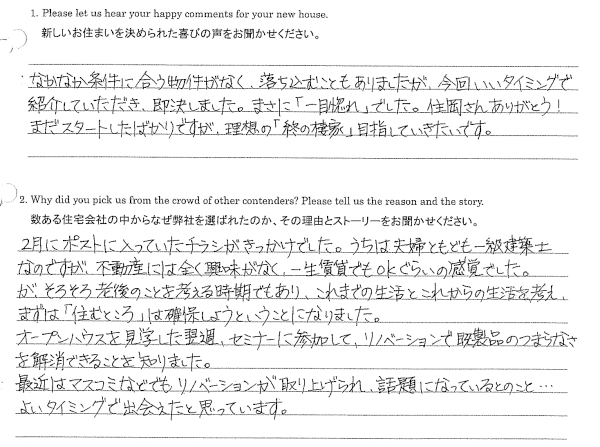 1. Please let us hear your happy comments for your new house.
新しいお住まいを決められた喜びの声をお聞かせください。
なかなか条件に合う物件がなく、落ち込むこともありましたが、今回いいタイミングで
紹介していただき、即決しました。まさに「一目惚れ」でした。住岡さんありがとう！
まだスタートしたばかりですが、理想の「終の棲家」目指していきたいです。
2. Why did you pick us from the crowd of other contenders? Please tell us the reason and the story.
数ある住宅会社の中からなぜ弊社を選ばれたのか、その理由とストーリーをお聞かせください。
2月にポストに入っていたチラシがきっかけでした。うちは夫婦ともども一級建築士
なのですが、不動産には全く興味がなく、一生賃貸でもokぐらいの感覚でした。
が、そろそろ老後のことを考える時期でもあり、これまでの生活とこれからの生活を考え、
まずは「住むところ」は確保しようということになりました。
オープンハウスを見学した翌週、セミナーに参加して、リノベーションで既製品のつまらなさ
を解消できることを知りました。
最近はマスコミなどでもリノベーションが取り上げられ、話題になっているとのこと…
よいタイミングで出会えたと思っています。